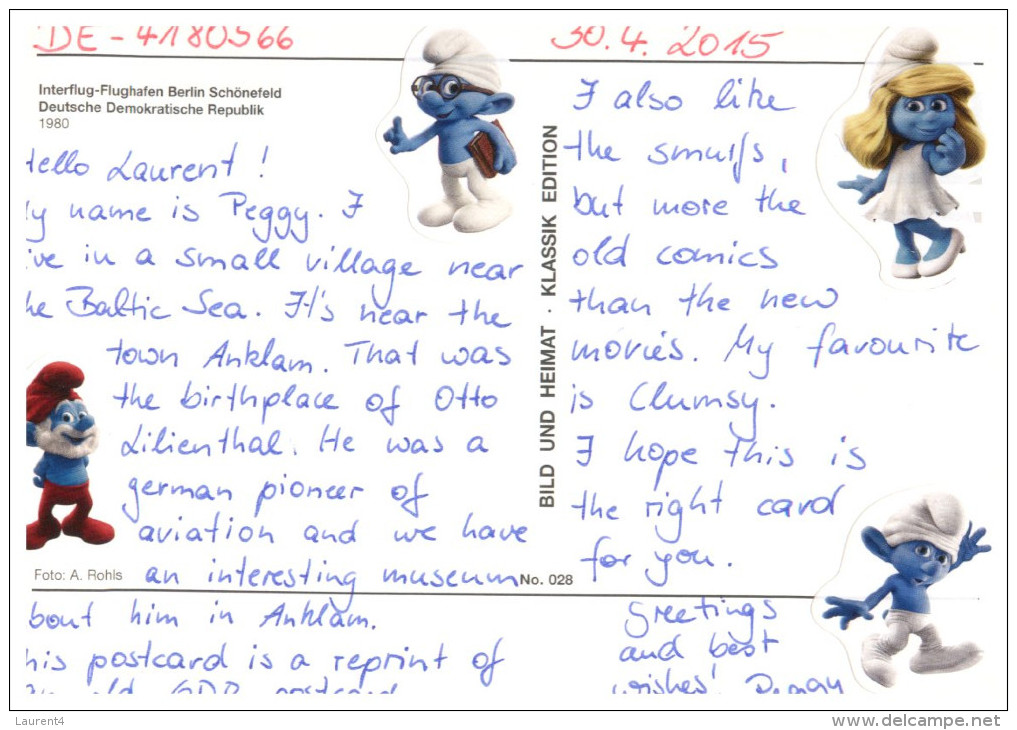 DE - 4180566
30.4. 2015
Interflug-Flughafen Berlin Schönefeld
Deutsche Demokratische Republik
1980
ello Laurent!
y name is Peggy. I
ive in a small village near
he Baltic Sea. It's near the
town Anklam. That was
the birthplace of Otto
Lilienthal. He was a
german pioneer of
aviation and we have
an interesting museum
bout him in Anklam.
his postcard is a reprint of
old GDR postcard
Foto: A. Rohls
No. 028
BILD UND HEIMAT · KLASSIK EDITION
I also like
the smurfs,
but more the
old comics
than the new
movies. My favourite
is Clumsy.
I hope this is
the right card
for you.
Greetings
and best
wishes! Peggy
Laurent4
www.delcampe.net